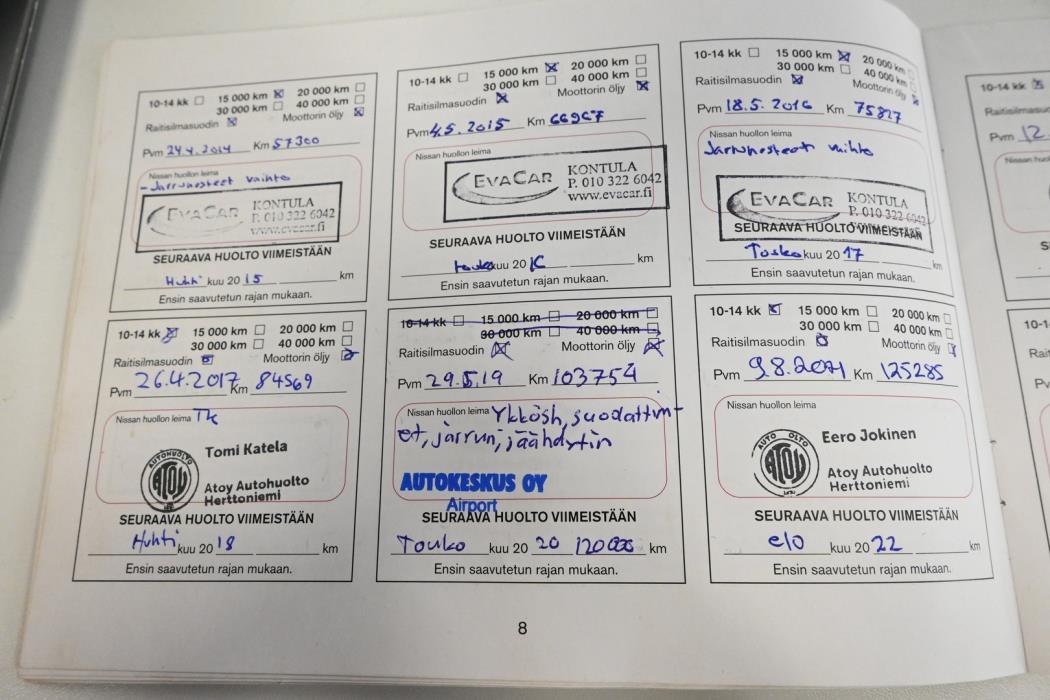 10-14 kk 15 000 km 20 000 km
30 000 km 40 000 km
Raitisilmasuodin Moottorin öljy
Pvm 24.4.2014 Km 57300
Nissan huollon leima
- Jarrunesteet vaihto
EVACAR KONTULA
P. 010 322 6042
www.evacar.fi
SEURAAVA HUOLTO VIIMEISTÄÄN
Huhti kuu 20 15 km
Ensin saavutetun rajan mukaan.
10-14 kk 15 000 km 20 000 km
30 000 km 40 000 km
Raitisilmasuodin Moottorin öljy
Pvm 4.5.2015 Km 66967
Nissan huollon leima
EVACAR KONTULA
P. 010 322 6042
www.evacar.fi
SEURAAVA HUOLTO VIIMEISTÄÄN
touko kuu 20 16 km
Ensin saavutetun rajan mukaan.
10-14 kk 15 000 km 20 000 km
30 000 km 40 000 km
Raitisilmasuodin Moottorin öljy
Pvm 18.5.2016 Km 75827
Nissan huollon leima
Jarrunesteet vaihto
EVACAR KONTULA
P. 010 322 6042
www.evacar.fi
SEURAAVA HUOLTO VIIMEISTÄÄN
Touko kuu 20 17 km
Ensin saavutetun rajan mukaan.
10-14 kk 15 000 km 20 000 km
30 000 km 40 000 km
Raitisilmasuodin Moottorin öljy
Pvm 26.4.2017 Km 84569
Nissan huollon leima TK
AUTOHUOLTO
ATOY
Tomi Katela
Atoy Autohuolto
Herttoniemi
SEURAAVA HUOLTO VIIMEISTÄÄN
Huhti kuu 20 18 km
Ensin saavutetun rajan mukaan.
10-14 kk 15 000 km 20 000 km
30 000 km 40 000 km
Raitisilmasuodin Moottorin öljy
Pvm 29.5.19 Km 103754
Nissan huollon leima Ykkösh, suodattim-
et, jarrun, jäähdytin
AUTOKESKUS OY
Airport
SEURAAVA HUOLTO VIIMEISTÄÄN
Touko kuu 20 20 120 000 km
Ensin saavutetun rajan mukaan.
10-14 kk 15 000 km 20 000 km
30 000 km 40 000 km
Raitisilmasuodin Moottorin öljy
Pvm 9.8.2021 Km 125285
Nissan huollon leima
ATOY
Eero Jokinen
Atoy Autohuolto
Herttoniemi
SEURAAVA HUOLTO VIIMEISTÄÄN
elo kuu 20 22 km
Ensin saavutetun rajan mukaan.
8
10-14 kk
Pvm 12.